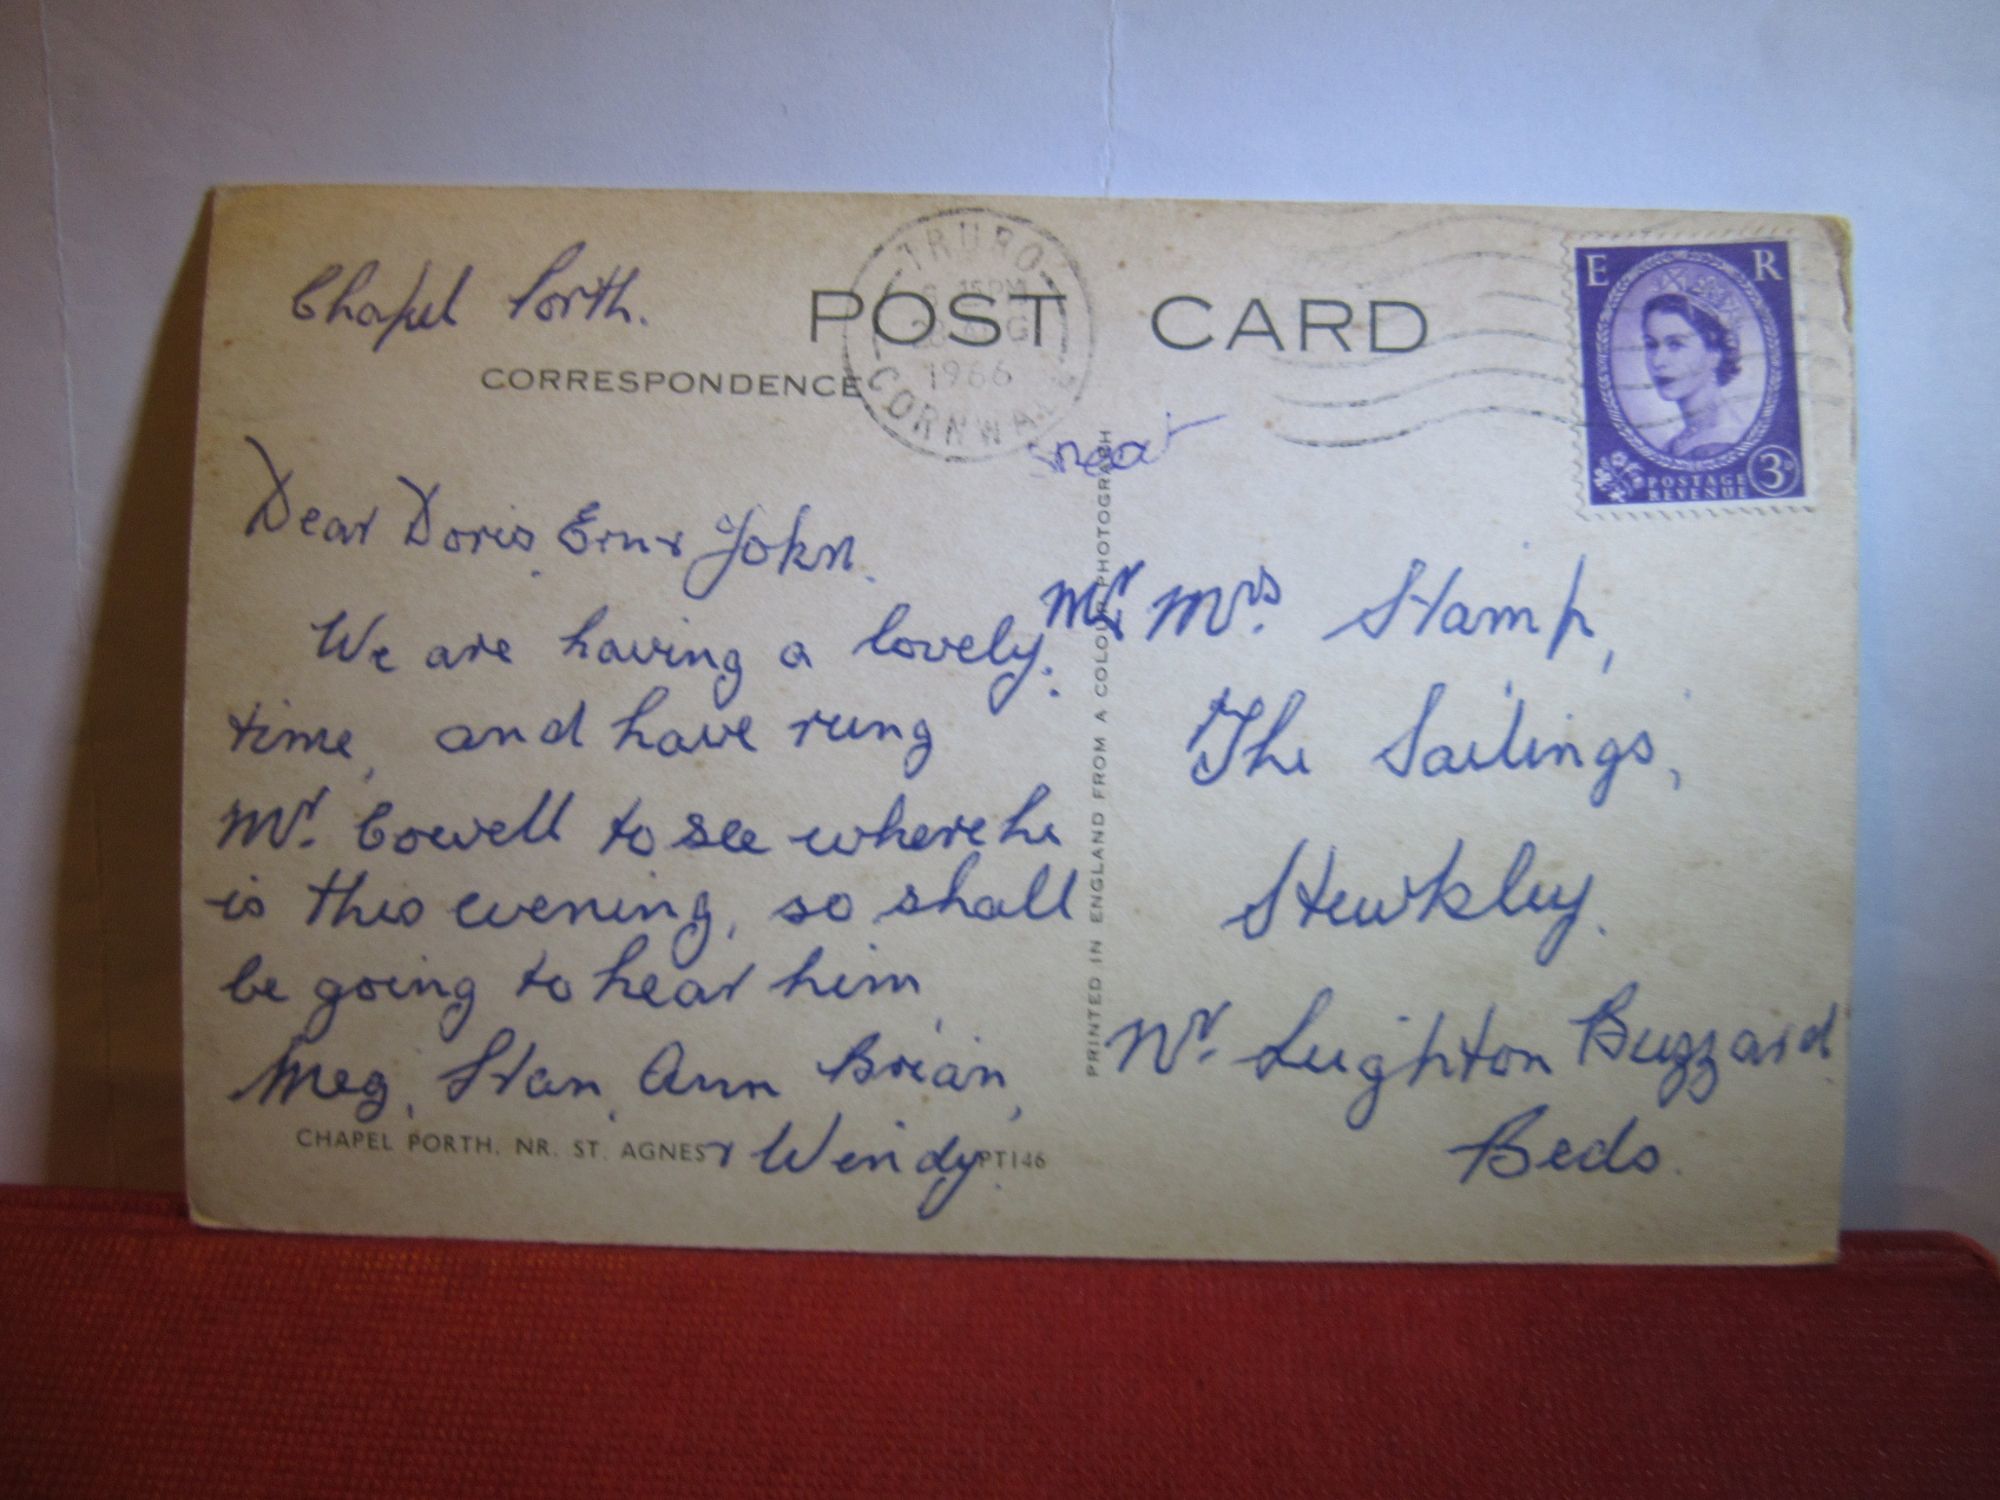 Chapel Porth.
POST CARD
CORRESPONDENCE
TRURO
15 PM
1966
CORNWALL
E R
POSTAGE
REVENUE
3D
Dear Doris, Ern & John.
We are having a lovely
time, and have rung
Mr. Cowell to see where he
is this evening, so shall
be going to hear him,
Meg, Stan, Ann Brian,
& Wendy.
CHAPEL PORTH, NR. ST. AGNES
PT146
PRINTED IN ENGLAND FROM A COLOUR PHOTOGRAPH
Mr & Mrs. Stamp,
The Sailings,
Stewkley.
Nr. Leighton Buzzard
Beds.